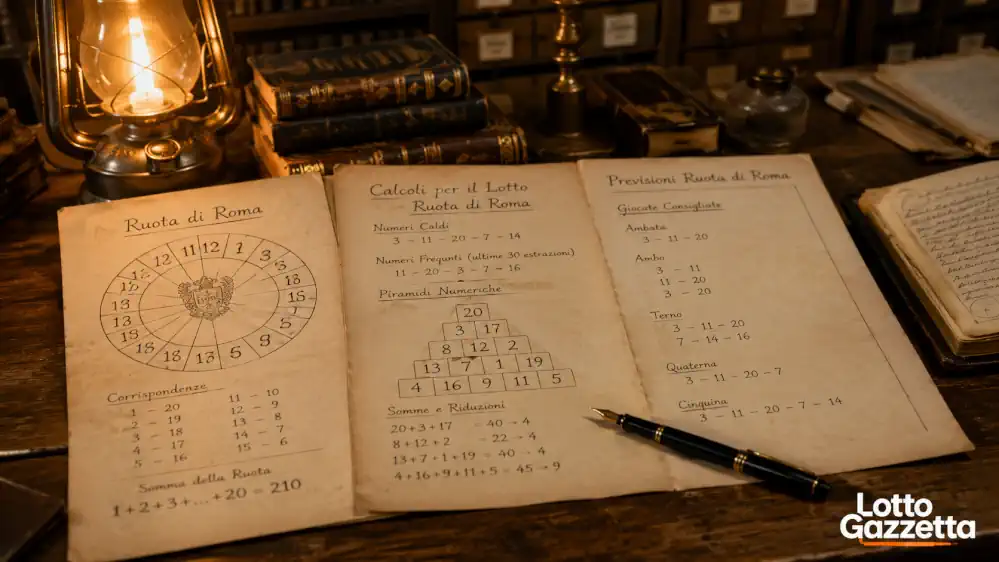 Ruota di Roma
12
11
12
1
3
5
9
5
13
Corrispondenze
1 - 20
2 - 19
3 - 18
4 - 17
5 - 16
11 - 10
12 - 9
13 - 8
14 - 7
15 - 6
Somma della Ruota
1+2+3+...+20 = 210
Calcoli per il Lotto
Ruota di Roma
Numeri Caldi
3 - 11 - 20 - 7 - 14
Numeri Frequnti (ultime 30 estrazioni)
11 - 20 - 3 - 7 - 16
Piramidi Numeriche
20
3 17
8 12 2
13 7 1 19
4 16 9 11 5
Somme e Riduzioni
20+3+17 = 40 → 4
8+12+2 = 22 → 4
13+7+1+19 = 40 → 4
4+16+9+11+5 = 45 → 9
Previsioni Ruota di Roma
Giocate Consigliate
Ambata
3 - 11 - 20
Ambo
3 - 11
11 - 20
3 - 20
Terno
3 - 11 - 20
7 - 14 - 16
Quaterna
3 - 11 - 20 - 7
Cinquina
3 - 11 - 20 - 7 - 14
Lotto
Gazzetta